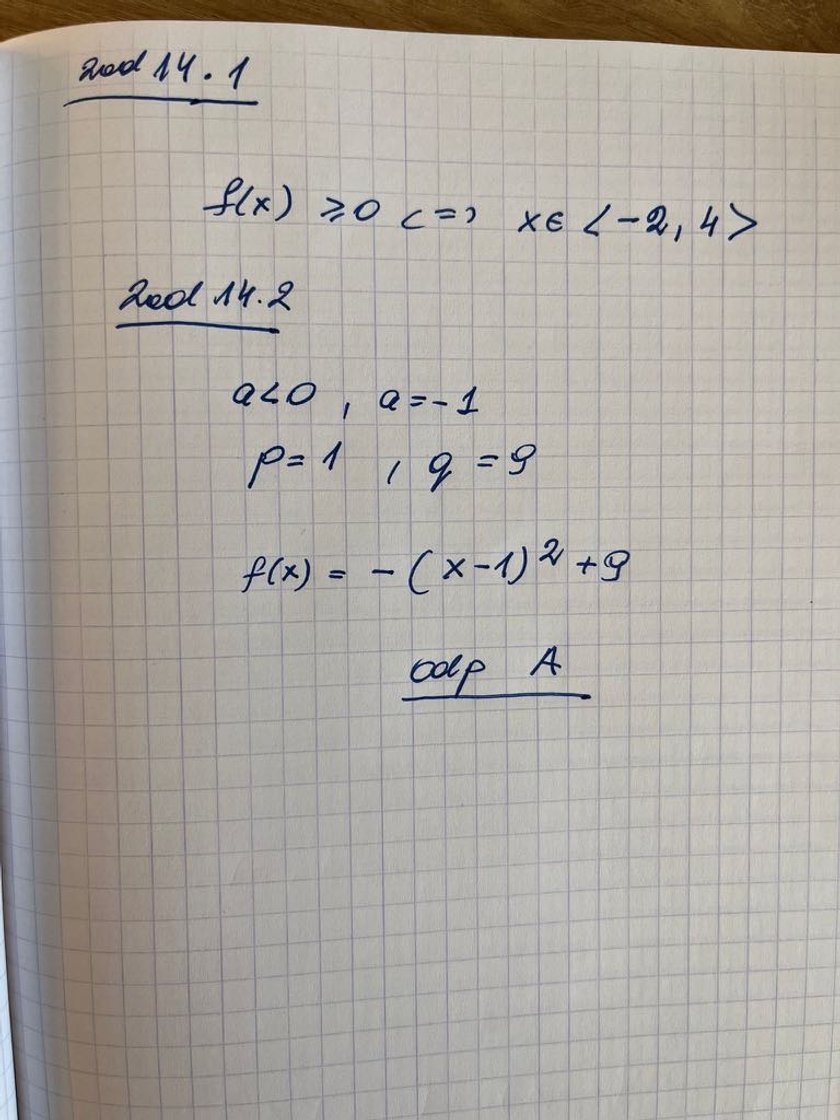 zad 14.1
f(x) ≥0 <=> x∈ <-2, 4>
Zad 14.2
a<0 , a=-1
p=1 , q=9
f(x) = -(x-1)² +9
odp A